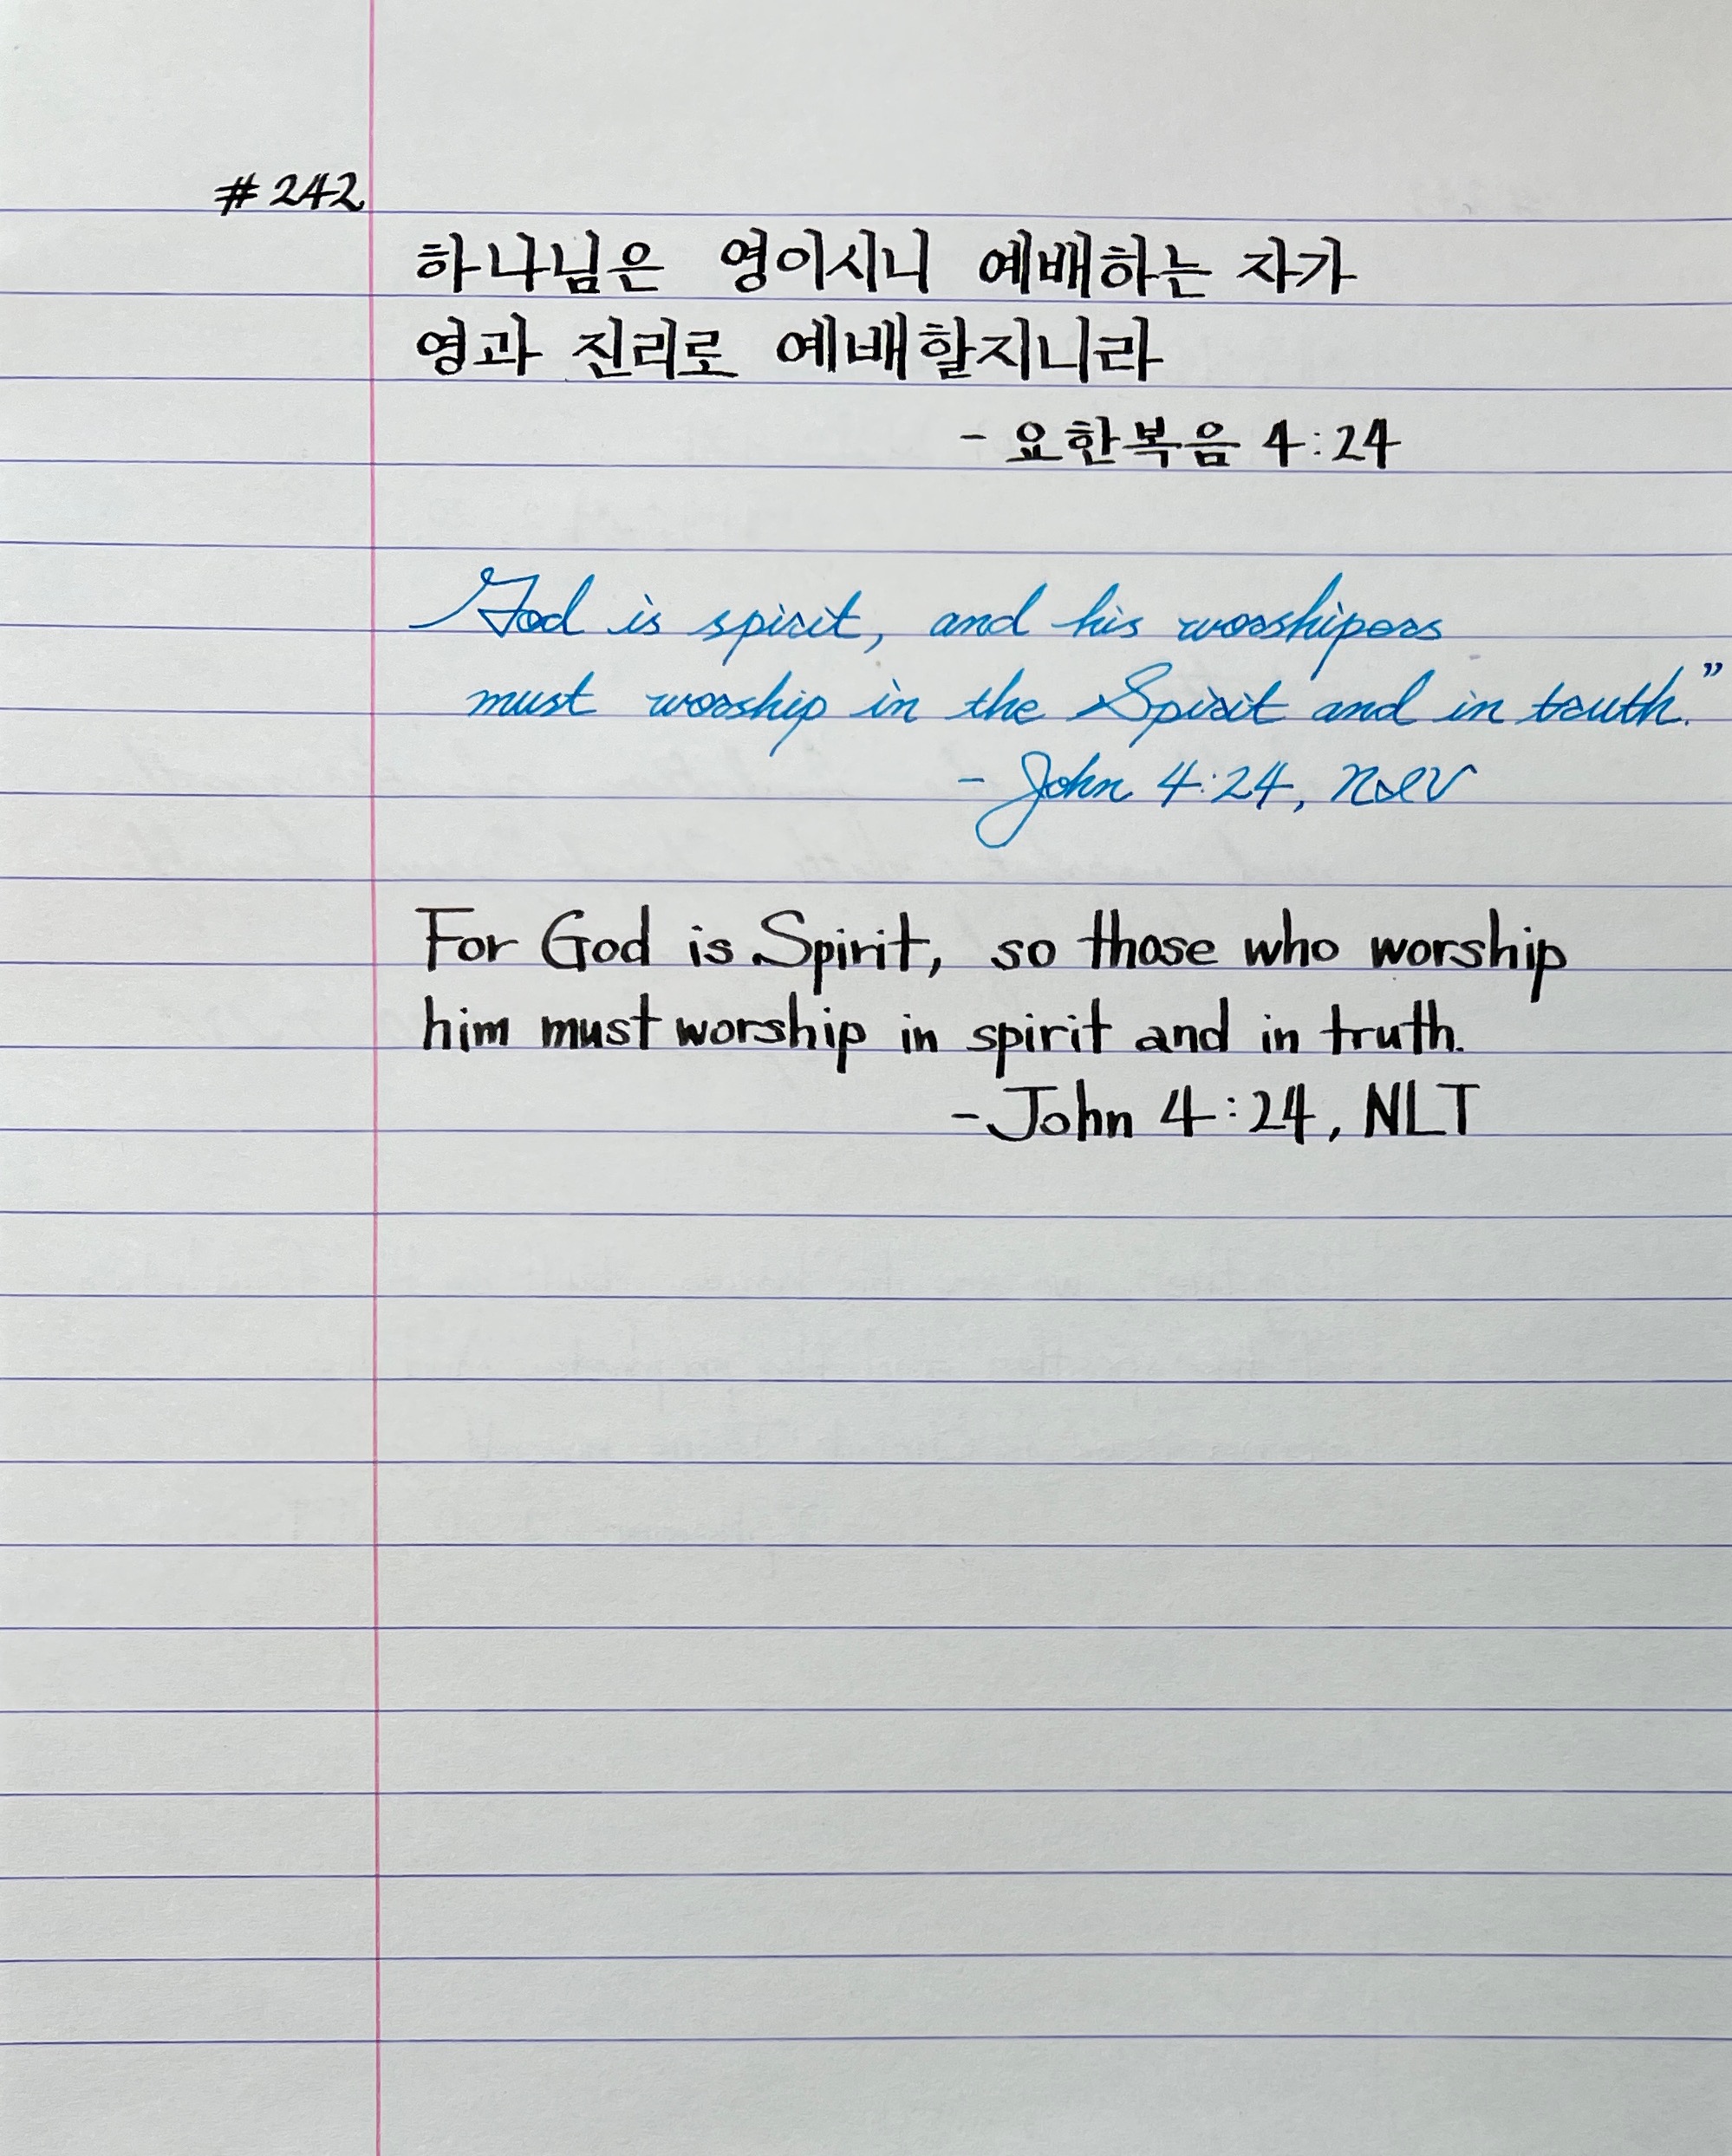 #242
하나님은 영이시니 예배하는 자가
영과 진리로 예배할지니라
- 요한복음 4:24
God is spirit, and his worshipers
must worship in the Spirit and in truth.”
- John 4:24, NIV
For God is Spirit, so those who worship
him must worship in spirit and in truth.
- John 4:24, NLT